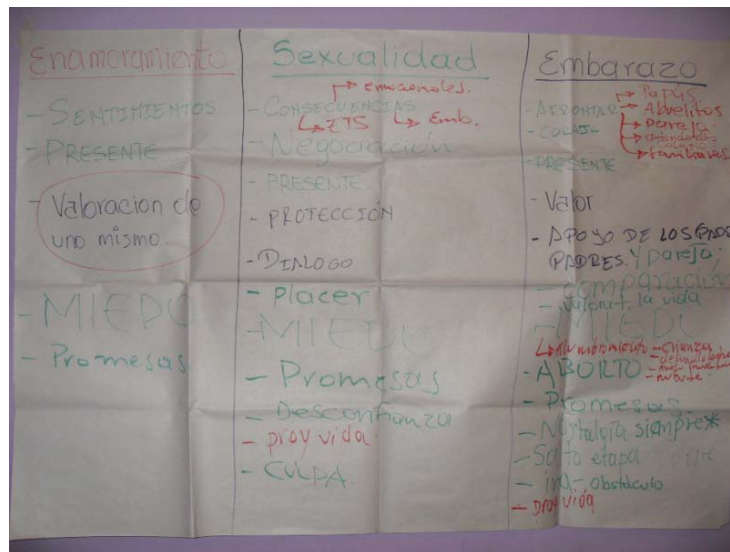 Enamoramiento
- SENTIMIENTOS
- PRESENTE
- Valoracion de
uno mismo
- MIEDO
- Promesas
Sexualidad
emocionales.
- CONSECUENCIAS
ETS Emb.
- Negociación
- PRESENTE
- PROTECCIÓN
- DIALOGO
- Placer
- MIEDO
- Promesas
- Desconfianza
- proy vida
- CULPA.
Embarazo
Papás
- AFRONTAR Abuelitos
pareja
- CORAJE
familiares
- PRESENTE
- Valor
- APOYO DE LOS
PADRES. y pareja,
- comparación
- valorar la vida
- MIEDO
crianza
- ABORTO
- muerte
- Promesas.
- Nostalgia siempre*
- Salto etapa
- ira - obstáculo
- proy vida